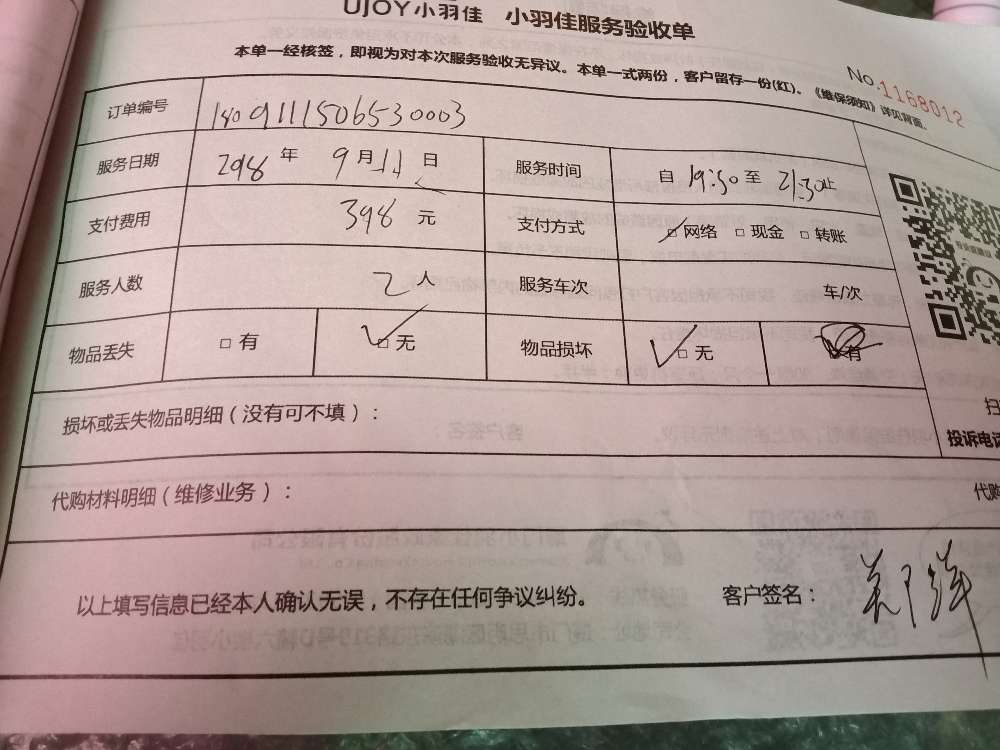 UJOY小羽佳 小羽佳服务验收单
本单一经核签，即视为对本次服务验收无异议。本单一式两份，客户留存一份(红)。《维保须知》详见背面。
No.1168012
订单编号 1409111506530003
服务日期 2018 年 9 月 11 日 服务时间 自 19:30 至 21:30 止
支付费用 398 元 支付方式 □网络 □现金 □转账
服务人数 2人 服务车次 车/次
物品丢失 □有 □无 物品损坏 □无 □有
损坏或丢失物品明细（没有可不填）：
扫
投诉电话
代购材料明细（维修业务）：
代购
以上填写信息已经本人确认无误，不存在任何争议纠纷。 客户签名：